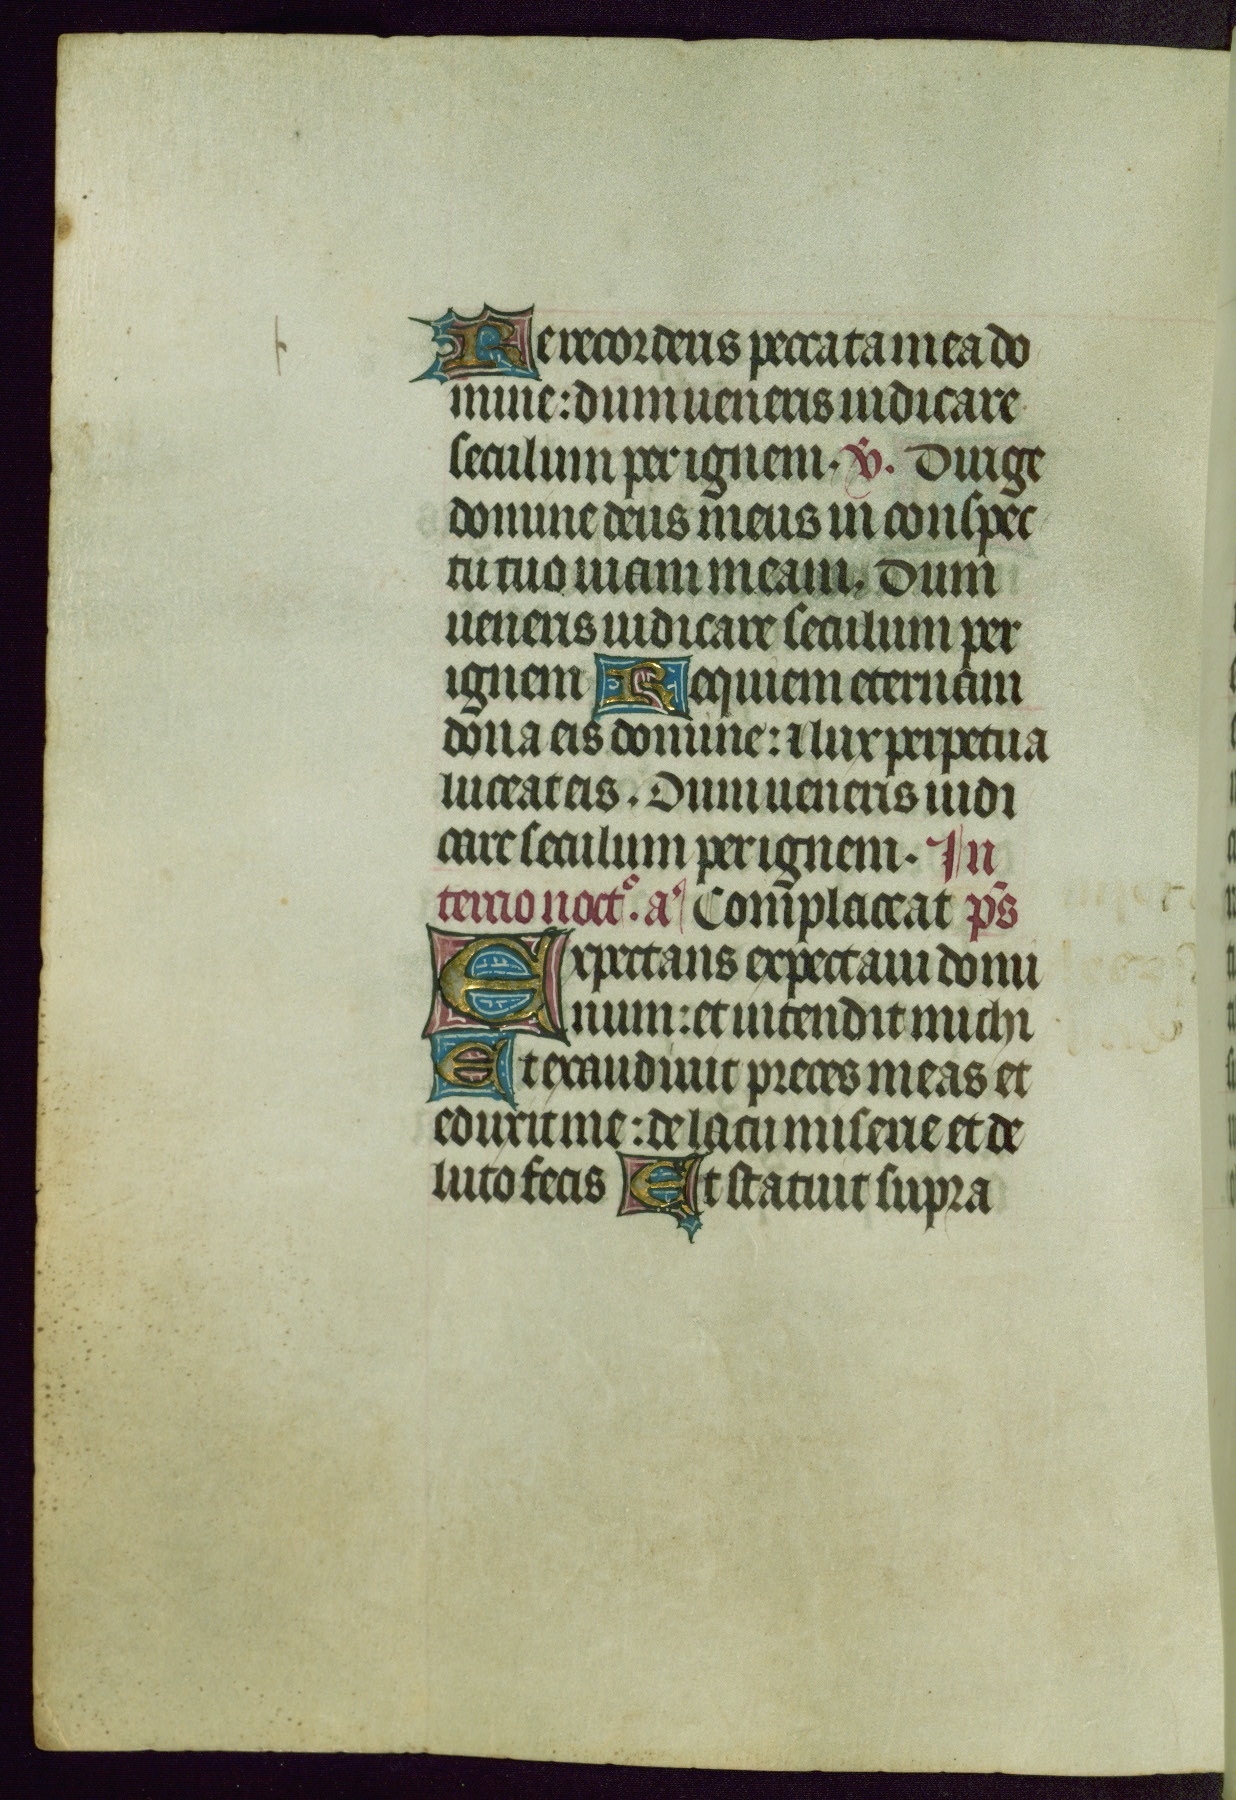 Re recorderis peccata mea do
mine: dum ueneris iudicare
seculum per ignem. v̄. Dirige
domine deus meus in conspec
tu tuo uiam meam. Dum
ueneris iudicare seculum per
ignem Requiem eternam
dona eis domine: ⁊ lux perpetua
luceat eis. Dum ueneris iudi
care seculum per ignem. In
tercio noct͛. a͛ Com̄placeat p̄s
Expectans expectaui domi
num: et intendit michi
Et exaudiuit preces meas et
eduxit me: de lacu miserie et de
luto fecis Et statuit supra